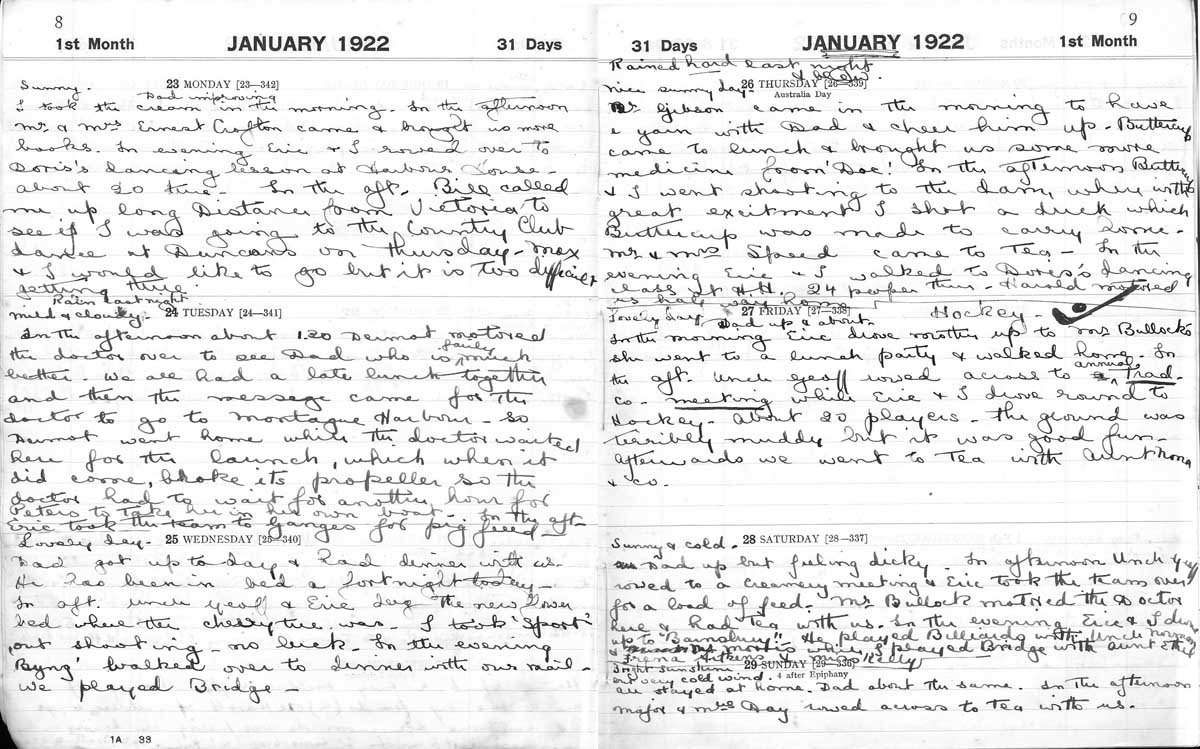 8
1st Month JANUARY 1922 31 Days
Sunny. 23 MONDAY [23—342]
Dad improving
I took the cream in the morning. In the afternoon
Mr & Mrs Ernest Crofton came & brought us more
books. In evening Eric & I rowed over to
Doris's dancing lesson at Harbour House -
about 20 there. In the aft. Bill called
me up long Distance from Victoria to
see if I was going to the Country Club
dance at Duncans on Thursday - Max
& I would like to go but it is too difficult
getting there.
Rain last night
mild & cloudy - 24 TUESDAY [24—341]
In the afternoon about 1.20 Dermot motored
the doctor over to see Dad who is fairly much
better. We all had a late lunch together
and then the message came for the
doctor to go to Montague Harbour - so
Dermot went home while the doctor waited
here for the launch, which when it
did come, broke its propeller so the
doctor had to wait for another hour for
Peters to take him in his own boat. In the aft -
Eric took the team to Ganges for pig feed -
Lovely day - 25 WEDNESDAY [25—340]
Dad got up to day & had dinner with us.
He has been in bed a fortnight today -
In aft. Uncle Geoff & Eric dug the new flower
bed where the cherry tree was. I took 'Sport'
out shooting - no luck. In the evening
'Byng' walked over to dinner with our mail -
we played Bridge -
1A 33
9
31 Days JANUARY 1922 1st Month
Rained hard last night
& blew.
nice sunny day - 26 THURSDAY [26—339]
Australia Day
Mr Gibson came in the morning to have
a yarn with Dad & cheer him up - Buttercup
came to lunch & brought us some more
medicine from 'Doc'! In the afternoon Buttercup
& I went shooting to the dam, where with
great excitment I shot a duck which
Buttercup was made to carry home -
Mr & Mrs Speed came to Tea - In the
evening Eric & I walked to Doris's dancing
class at H.H. 24 people there - Harold motored
us half way home
Hockey -
Lovely day 27 FRIDAY [27—338]
Dad up & about -
In the morning Eric drove mother up to Mrs Bullocks
she went to a lunch party & walked home. In
the aft. Uncle Geoff rowed across to annual Trad.
Co. meeting while Eric & I drove round to
Hockey - about 20 players - the ground was
terribly muddy but it was good fun -
Afterwards we went to Tea with Aunt Nona
& co.
Sunny & cold. 28 SATURDAY [28—337]
Dad up but feeling dicky. In afternoon Uncle Geoff
rowed to a creamery meeting & Eric took the team over
for a load of feed. Mr Bullock motored the Doctor
here & had Tea with us. In the evening Eric & I drove
up to "Barnsbury". He played Billiards with Uncle Norman
& Morris while I played Bridge with Aunt
Frena Aitkens & Miss Kelly
Bright sunshine 29 SUNDAY [29—336]
but very cold wind. 4 after Epiphany
all stayed at home. Dad about the same. In the afternoon
Major & Mrs Day rowed across to Tea with us.